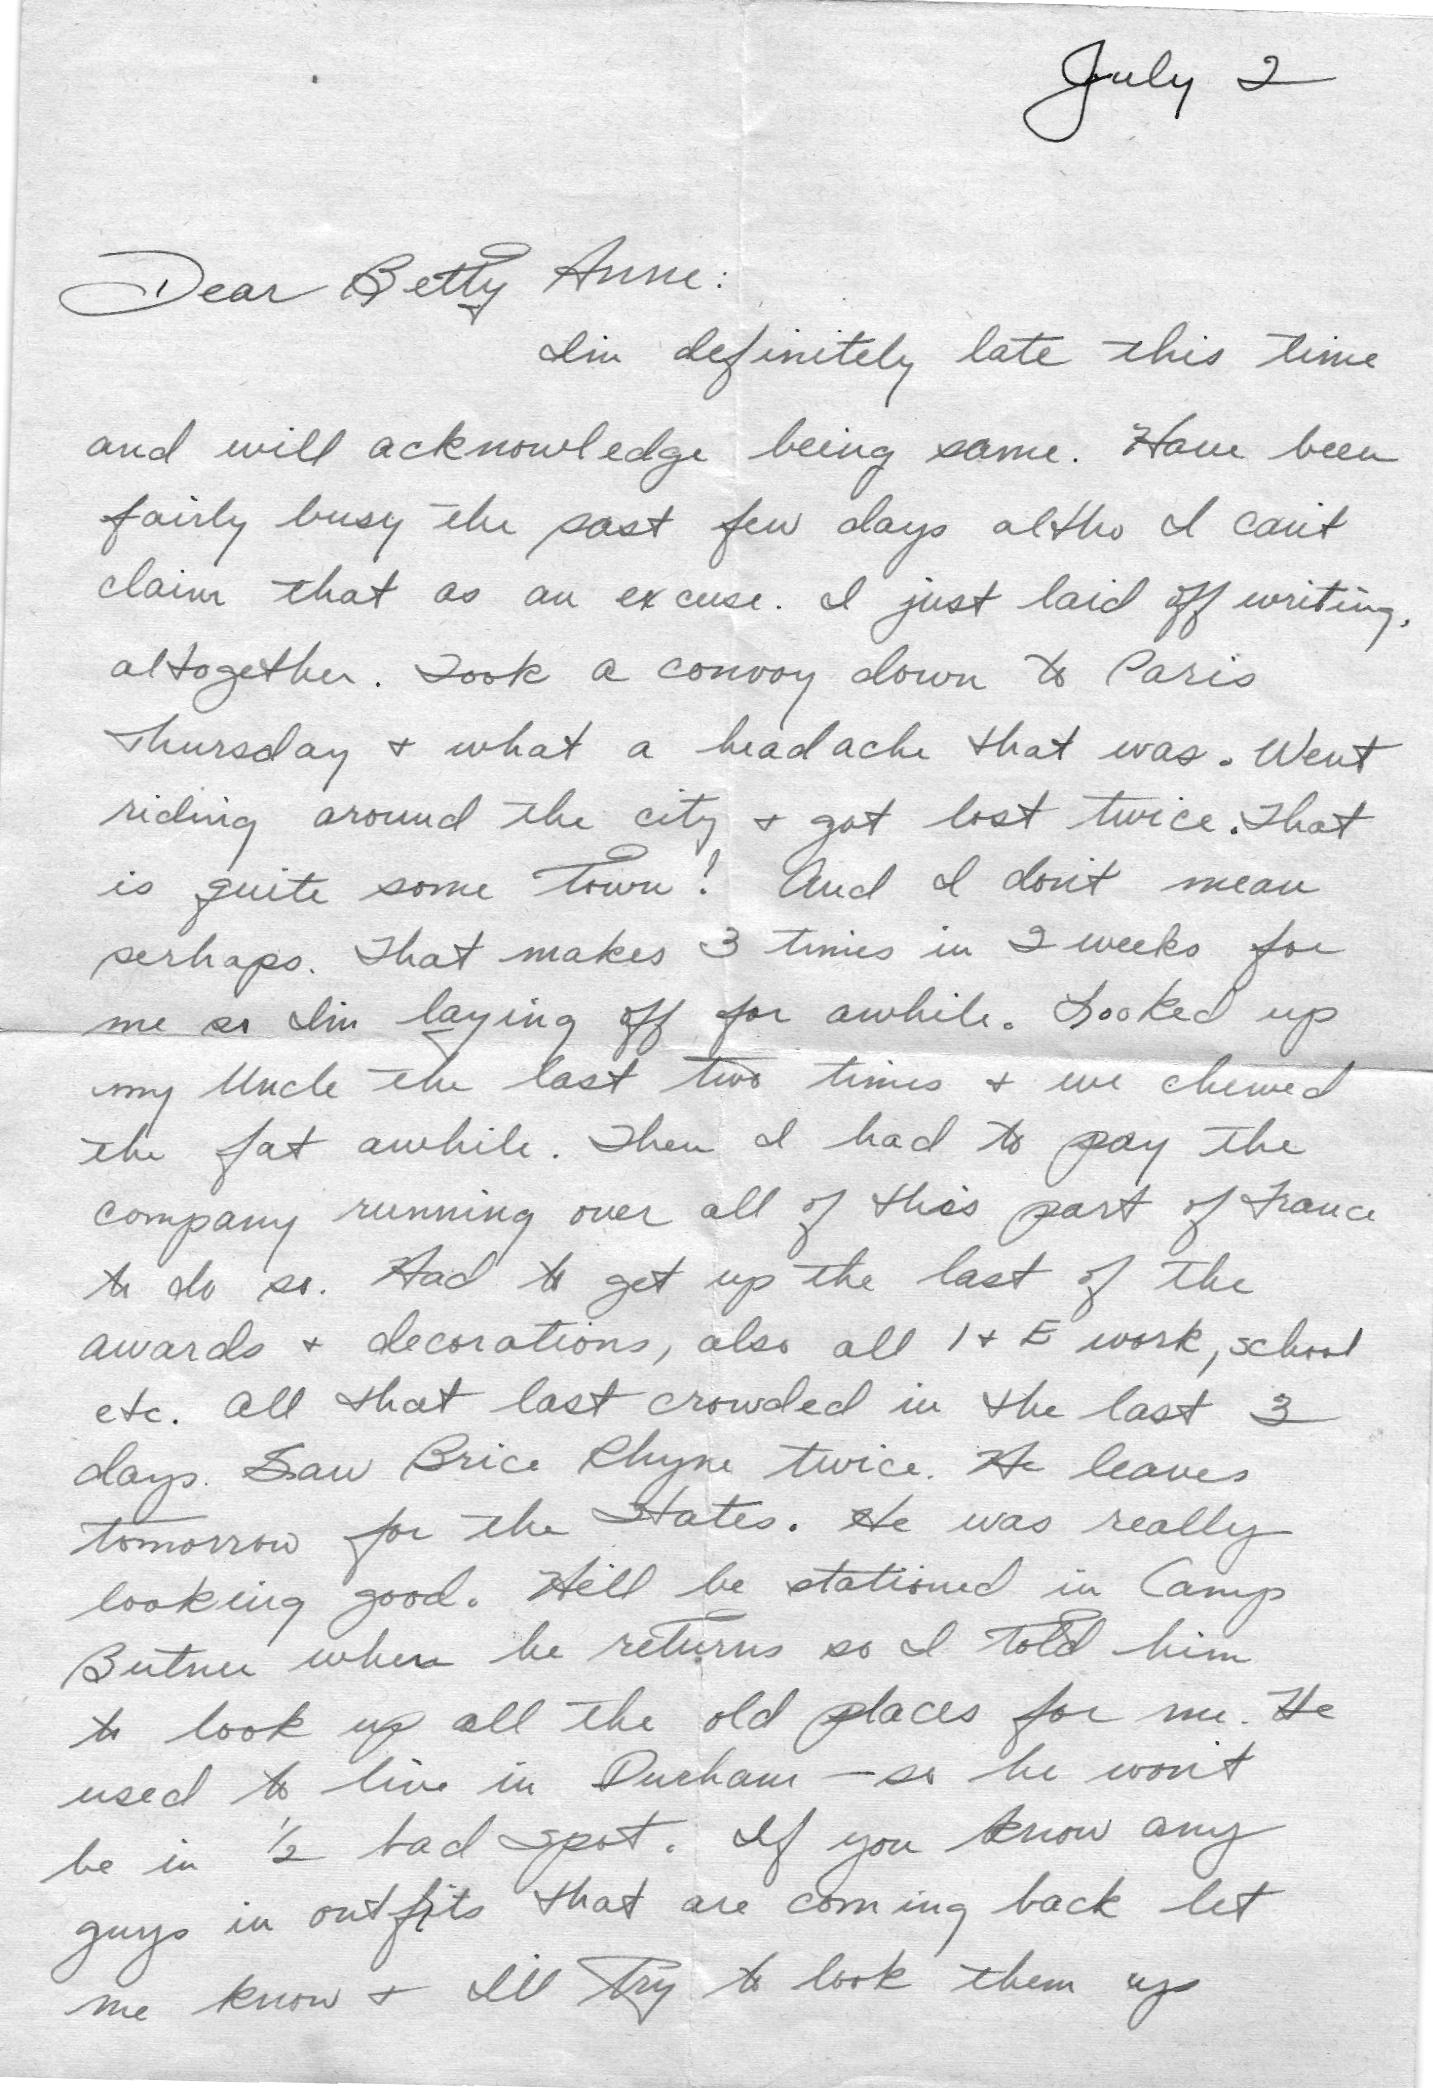 July 2
Dear Betty Anne:
I'm definitely late this time
and will acknowledge being same. Have been
fairly busy the past few days altho I can't
claim that as an excuse. I just laid off writing,
altogether. Took a convoy down to Paris
Thursday + what a headache that was. Went
riding around the city + got lost twice. That
is quite some town! And I don't mean
perhaps. That makes 3 times in 2 weeks for
me so I'm laying off for awhile. Looked up
my Uncle the last two times + we chewed
the fat awhile. Then I had to pay the
company running over all of this part of France
to do so. Had to get up the last of the
awards + decorations, also all I + E work, school
etc. All that last crowded in the last 3
days. Saw Brice Rhyne twice. He leaves
tomorrow for the States. He was really
looking good. He'll be stationed in Camp
Butner when he returns so I told him
to look up all the old places for me. He
used to live in Durham — so he won't
be in 1/2 bad spot. If you know any
guys in outfits that are coming back let
me know + I'll try to look them up